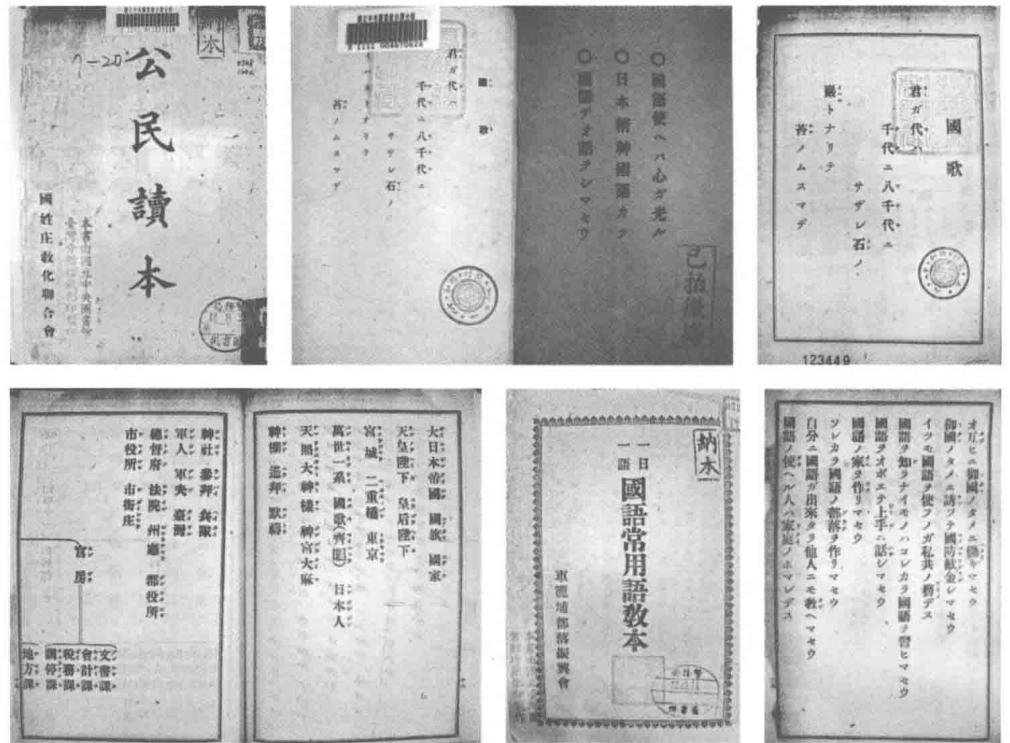 公民讀本
國姓庄教化聯合會
納本
9-20
國歌
君ガ代ハ
千代ニ八千代ニ
サザレ石ノ
苔ノムスマデ
〇國語使ヘバ心ガ光ル
〇日本精神國語カラ
〇國語デオ話ヲシマセウ
國歌
君ガ代ハ
千代ニ八千代ニ
サザレ石ノ
巖トナリテ
苔ノムスマデ
123449
大日本帝國 國旗 國家
天皇陛下 皇后陛下
宮城 二重橋 東京
萬世一系 國歌齊唱 日本人
天照大神樣 神宮大麻
神棚 遙拜 默禱
神社 參拜 兵隊
軍人 軍夫 臺灣
總督府 法院 州廳 郡役所
市役所 市街庄
官房
文書課
會計課
稅務課
調停課
地方課
納本
一日一語
國語常用語敎本
車籠埔部落振興會
オ互ヒニ御國ノタメニ働キマセウ
御國ノタメニ誇ツテ國防獻金シマセウ
イツモ國語ヲ使フノガ私共ノ務デス
國語ヲ知ラナイモノハコレカラ國語ヲ習ヒマセウ
國語ヲオボエテ上手ニ話シマセウ
國語ノ家ヲ作リマセウ
ソレカラ國語ノ部落ヲ作リマセウ
自分ニ國語ガ出來タラ他人ニモ敎ヘマセウ
國語ノ使ヘル人ハ家庭ノホマレデス